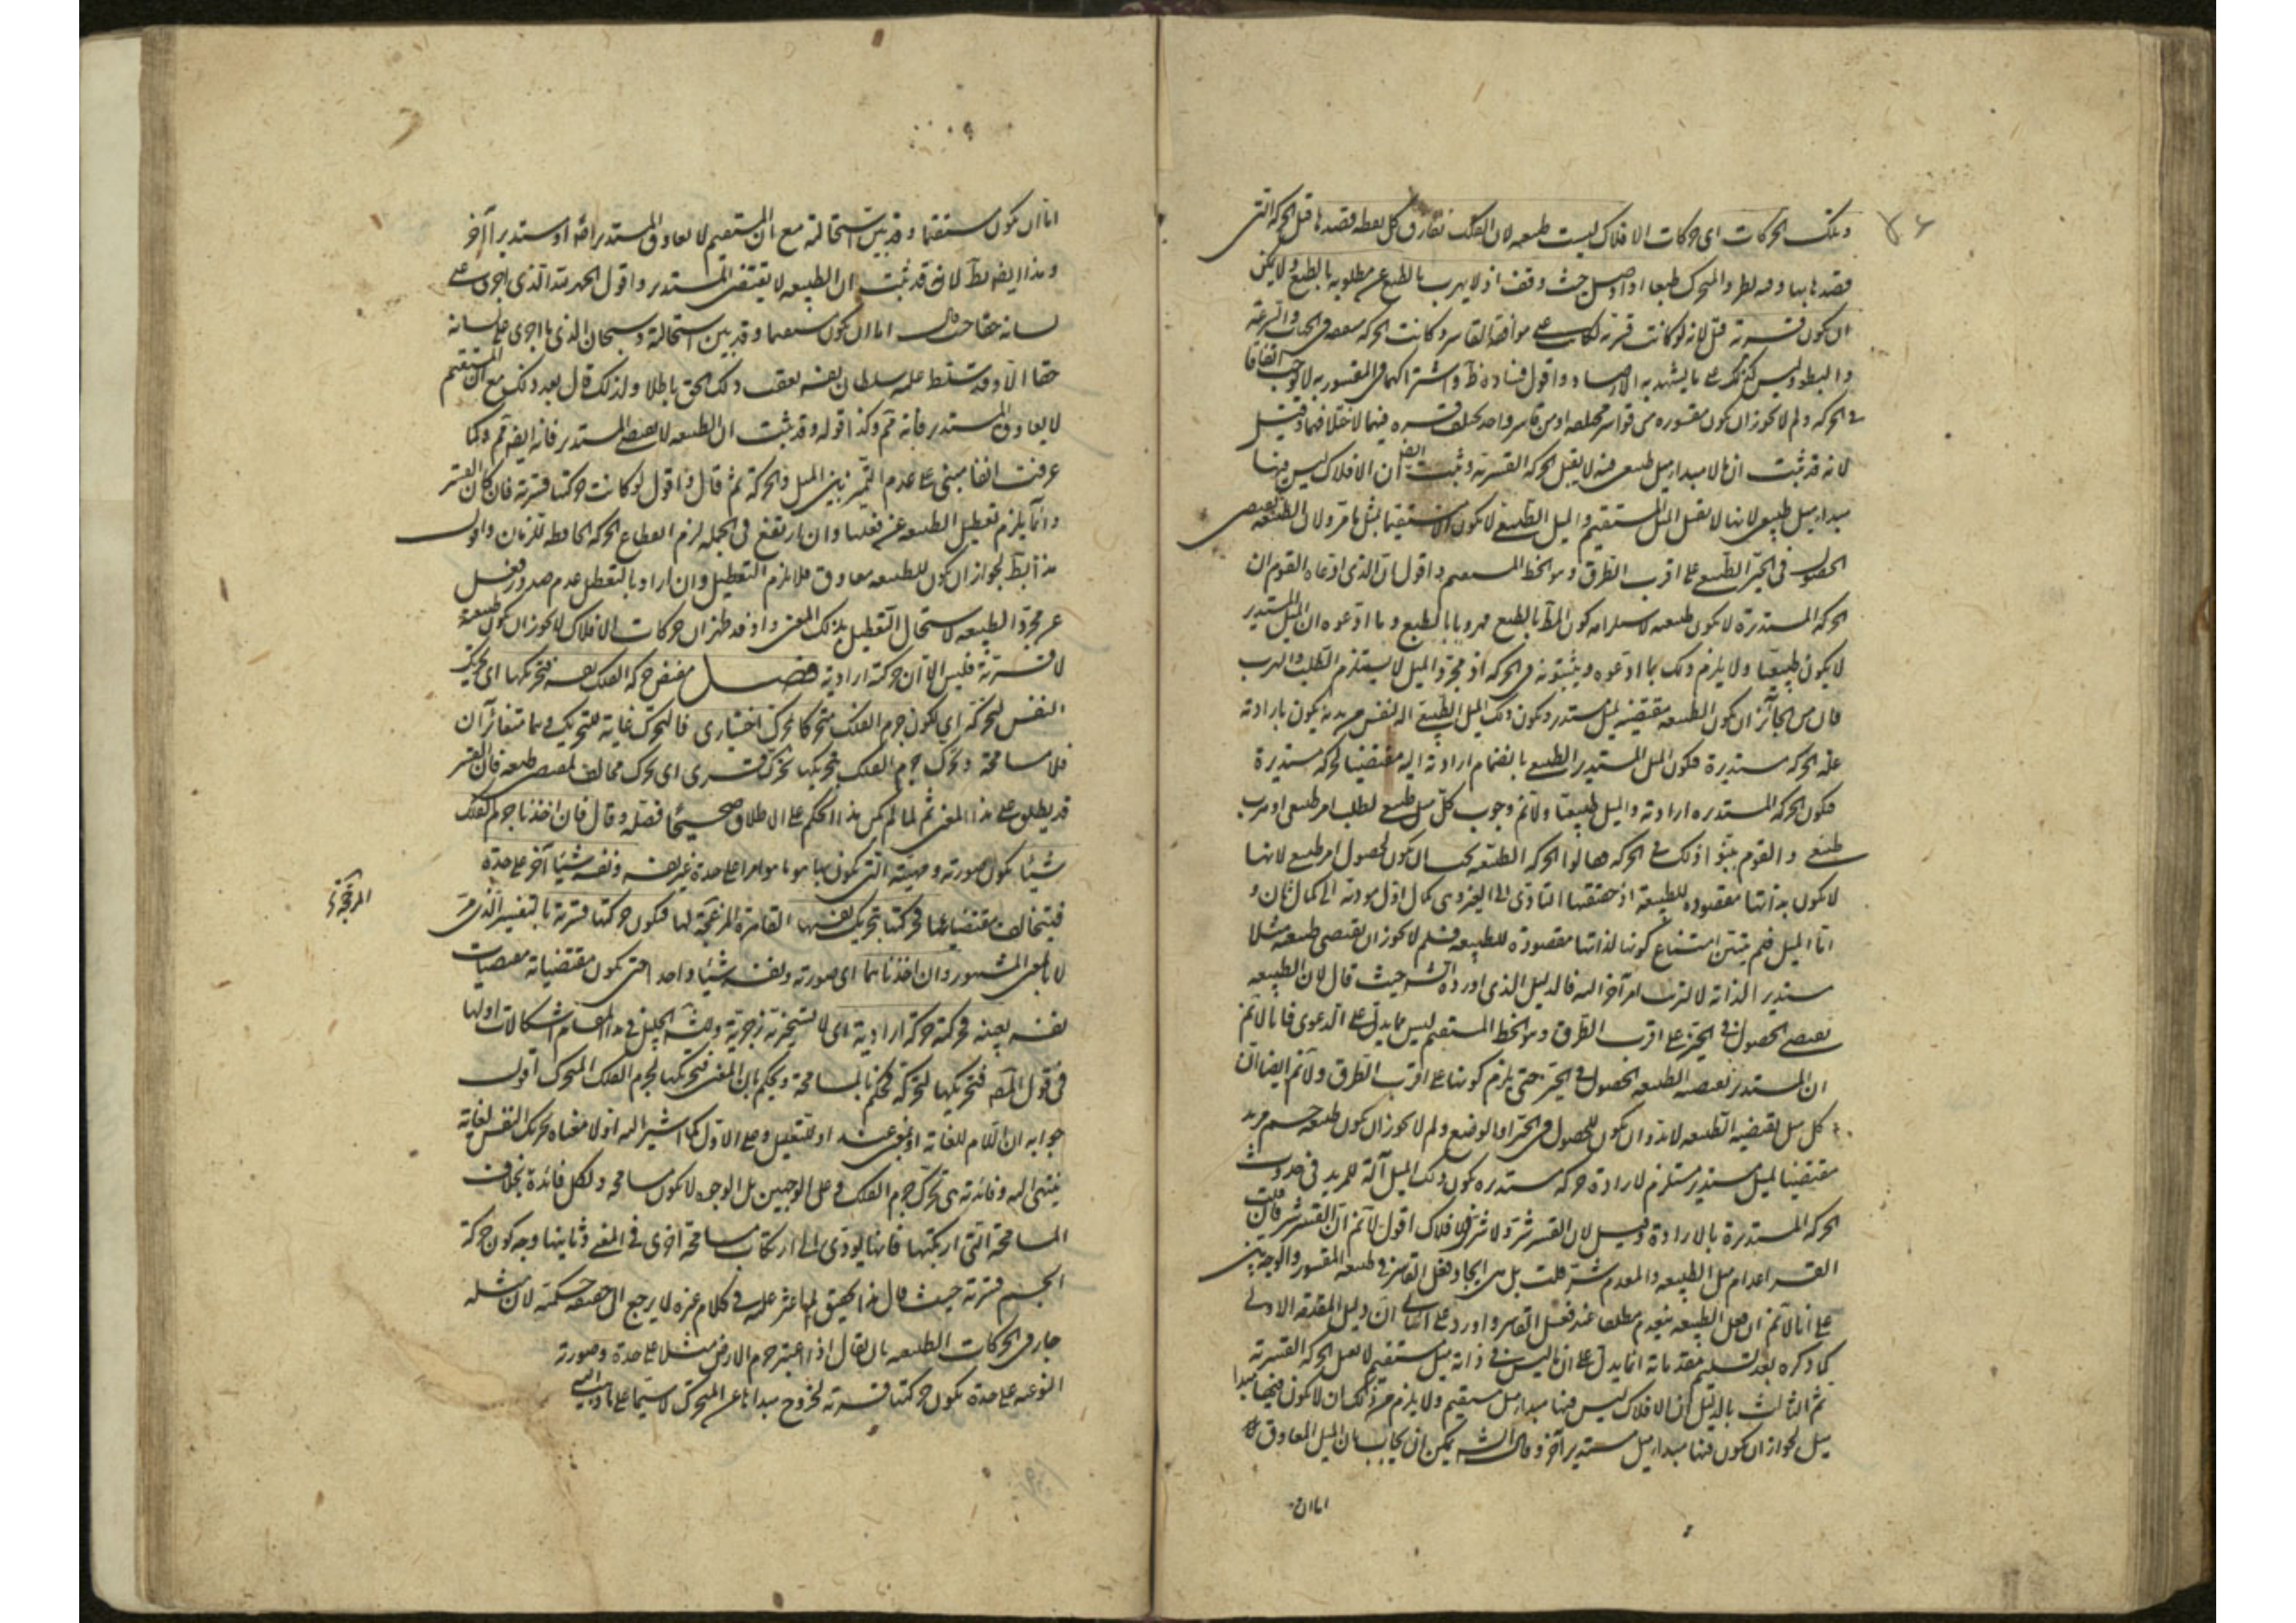 وتلك الحركات اى حركات الافلاك ليست طبيعه لان الفلك يفارق كل نقطه قصدها قبل الحركه التى
قصدها بها وفيه نظر والمتحرك طبعا اذا وصل حيث وقف اذ لا يهرب بالطبع عن مطلوبه بالطبع ولا يمكن
ان يكون قسرية قيل لانه لو كانت قسرية لكانت على موافقة القاسر وكانت الحركه متفقه فى الجهات والسرعة
والبطوء وليس كذلك على ما يشهد به الارصاد واقول فساده ظ واشتراكهما فى المقسوريه لا يوجب اتفاقا
فى الحركه ولم لا يجوز ان يكون مقسوره من قواسر مختلفه او من قاسر واحد يختلف قسره فيهما لاختلافهما وقيل
لانه قد ثبت ان ما لا مبدا ميل طبيعى فيه لا يقبل الحركه القسرية وثبت ايض ان الافلاك ليس فيها
مبدا ميل طبيعى لانها لا تقبل الميل المستقيم والميل الطبيعى لا يكون الا مستقيما بمثل ما مر ولان الطبيعه تقتضى
الحصول فى الحيز الطبيعى على اقرب الطرق وهو الخط المستقيم واقول ان الذى ادعاه القوم ان
الحركه المستديرة لا يكون طبيعه لاستلزامه كون المط بالطبع مهروبا بالطبع وما ادعوه ان الميل المستدير
لا يكون طبيعيا ولا يلزم ذلك مما ادعوه ويثبتونه فى الحركه اذ مجرد الميل لا يستلزم الطلب والهرب
فان من الجائز ان يكون الطبيعه مقتضيه لميل مستدير ويكون ذلك الميل الطبيعى اله لنفس مريدة يكون بارادته
علة الحركه مستديرة فيكون الميل المستدير الطبيعى بانضمام ارادته اليه مقتضيا لحركه مستديرة
فيكون الحركه المستديره اراديه والميل طبيعيا ولا نم وجوب كل ميل طبيعى لطلب امر طبيعى او هرب
طبيعى والقوم بينوا ذلك فى الحركه فقالوا الحركه الطبيعه يجب ان يكون لحصول امر طبيعى لانها
لا يكون بذاتها مقصوده للطبيعة اذ حقيقتها التادى الى الغير وهى كمال اول مودية الى كمال ثان و
اما الميل فلم يتبين امتناع كونها لذاتها مقصودة للطبيعه فلم لا يجوز ان يقتضى طبيعه ميلا
مستديرا لذاته لا لترتب امر آخر اليه فالدليل الذى اورده الش حيث قال لان الطبيعه
تقتضى الحصول فى الحيز على اقرب الطرق وهو الخط المستقيم ليس مما يدل على الدعوى فانا لا نم
ان المستدير تقتضيه الطبيعه لحصول فى الحيز حتى يلزم كونها على اقرب الطرق ولا نم ايضا ان
كل ميل تقتضيه الطبيعه لا بد وان يكون للحصول فى الحيز او الوضع ولم لا يجوز ان يكون طبيعه جسم مريد
مقتضيا لميل مستدير مستلزم لارادة حركه مستديره يكون ذلك الميل آلة للمريد فى حدوث
الحركه المستديرة بالارادة وقيل لان القسر شر ولا شر فى الافلاك اقول لا نم ان القسر شر فان قلت
القسر اعدام ميل الطبيعه والعدم شر قلت بل هى ايجاد فعل القاسر فى طبيعه المقسور والوجود خير
على انا لا نم ان فعل الطبيعه ينعدم مطلقا عند فعل القاسر واورد على الثانى ان دليل المقدمة الاولى
كما ذكره بعد تسليم مقدماته انما يدل على ان ما ليس فى ذاته ميل مستقيم لا يقبل الحركه القسرية
ثم الثالث بالدليل ان الافلاك ليس فيها مبدا ميل مستقيم ولا يلزم من ذلك ان لا يكون فيها مبدا
ميل لجواز ان يكون فيها مبدا ميل مستدير آخر وقال الش يمكن ان يجاب بان الميل المعاوق
اما ان
اما ان يكون مستقيما وقد بين استحالته مع ان المستقيم لا يعاوق المستدير اصلا او مستديرا آخر
وهذا ايض بط لانه قد ثبت ان الطبيعه لا يقتضى المستدير واقول الحمد لله الذى اجرى على
لسانه حقا حيث قال اما ان يكون مستقيما وقد بين استحالته وسبحان الذى ما اجرى على لسانه
حقا الا وقد تسلط عليه سلطان نفسه يعقب ذلك الحق باطلا ولذلك قال بعد ذلك مع ان المستقيم
لا يعاوق المستدير فانه تم وكذا قوله وقد ثبت ان الطبيعه لا تقتضى المستدير فانه ايض تم وكما
عرفت انفا مبنى على عدم التميز بين الميل والحركة ثم قال واقول لو كانت حركتها قسرية فان كان القسر
دائما يلزم تعطيل الطبيعه عن فعلها وان ارتفع فى الجمله لزم انقطاع الحركه الحافظه للزمان واقول
هذا بط لجواز ان يكون للطبيعه معاوق فلا يلزم التعطيل وان اراد بالتعطل عدم صدور فعل
عن مجرد الطبيعه لا استحال التعطيل بذلك المعنى واذ قد ظهر ان حركات الافلاك لا يجوز ان يكون طبيعة
لا قسرية فليس الا ان حركته ارادية فصل مقتضى حركه الفلك نفسه فتحريكها اى تحريك
النفس لحركه اى يكون جرم الفلك متحركا تحرك اختيارى فالتحرك غاية للتحريك وهما متغائران
فلا مسامحة وتحرك جرم الفلك بتحريكها تحرك قسرى اى تحرك مخالف لمقتضى طبيعه فان القسر
قد يطلق على هذا المعنى ثم لما لم يكن هذا الحكم على الاطلاق صحيحا فصله وقال فان اخذنا جرم الفلك
شيئا يكون صورته وهيئته التى يكون بها هو ما هو امرا على حدة غير نفسه ونفسه شيئا آخر على حدة
فيتخالف مقتضياهما فحركتها بتحريك نفسها القاسرة المزعجة لها فيكون حركتها قسرية بالتفسير الذى مر
المزعجة
لا بالمعنى المشهور وان اخذناهما اى صورته ونفسه شيئا واحدا حتى يكون مقتضياته مقتضيات
نفسه بعينه فحركته حركة ارادية اى لا تسخيرية زجرية وللش الجليل فى هذا المقام اشكالات اولها
فى قول المص فتحريكها لحركه فحكم بالمسامحة ويحكم بان المعنى فتحريكها لجرم الفلك المتحرك اقول
جوابه ان اللام للغاية او بمعنى عند او للتعليل وعلى الاول كما اشير اليه اولا معناه تحريك النفس لغاية
ينتهى اليه وفائدته هى تحرك جرم الفلك وعلى الوجهين بل الوجوه لا يكون مسامحه ولكل فائدة بخلاف
المسامحة التى ارتكبها فانها يودى الى ارتكاب مسامحة اخرى فى المعنى وثانيها وجه كون حركة
الجسم قسرية حيث قال هذا تحقيق لما عثر عليه فى كلام غيره لا يرجع الى حصة حكمته لان مثله
جار فى الحركات الطبيعه بان يقال اذا اعتبر جرم الارض مثلا على حدة وصورته
النوعيه على حدة يكون حركتها قسرية لخروج مبداها عن المتحرك لا سيما على ما ذهب اليه